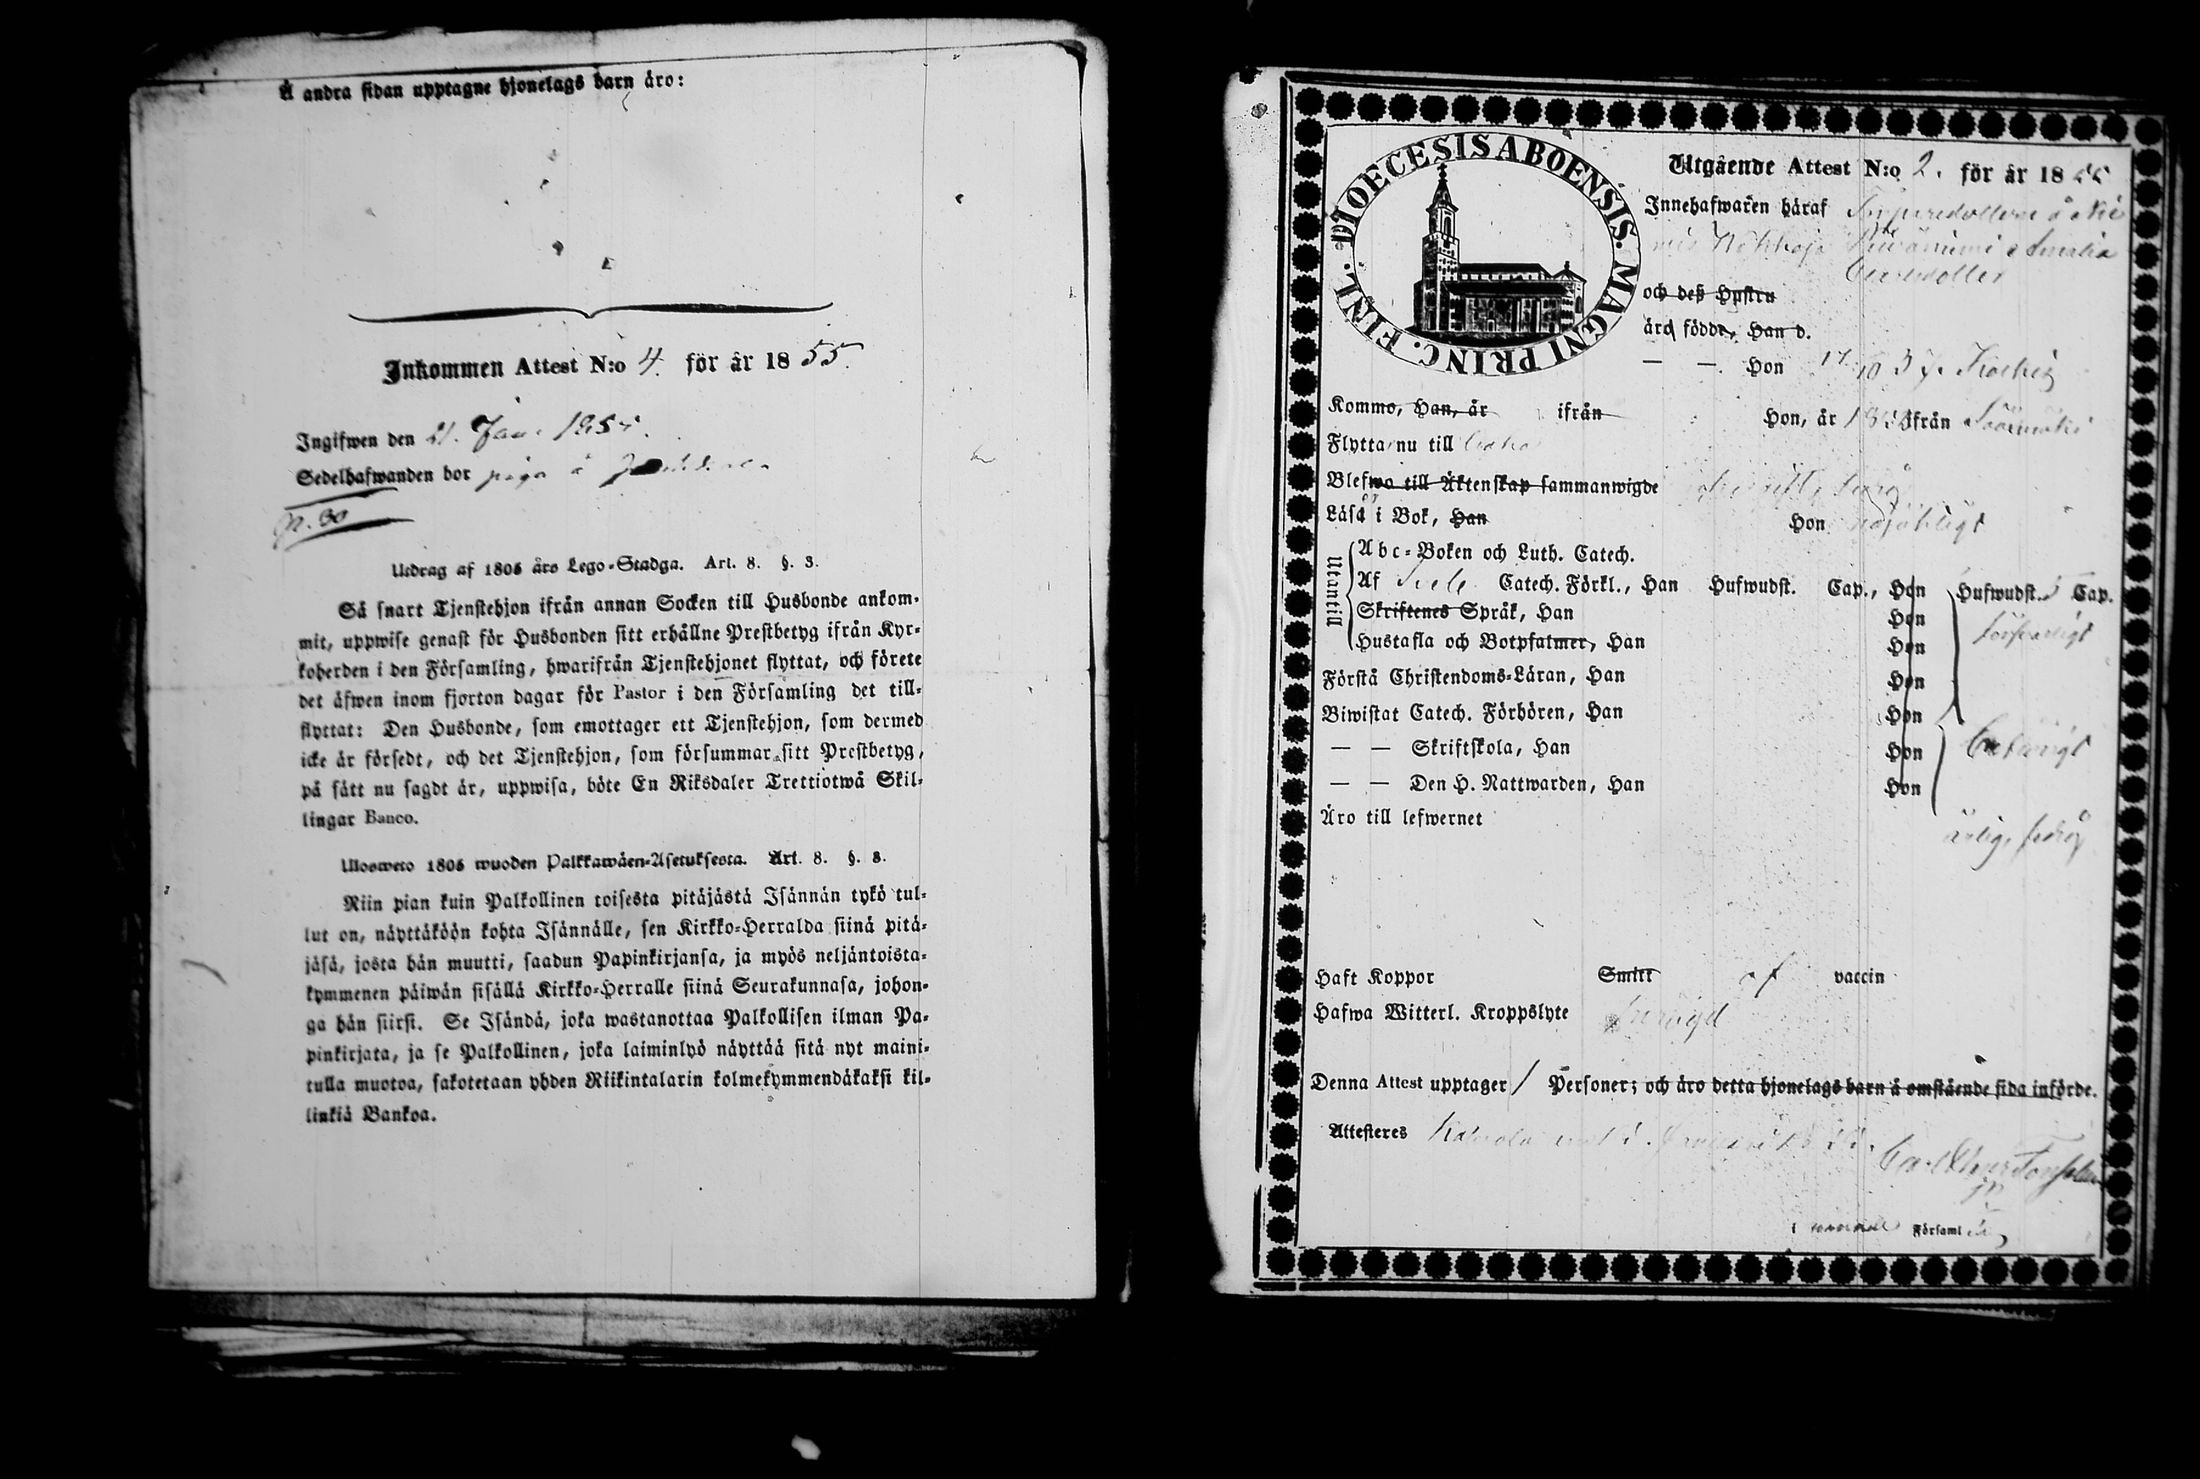 Å andra sidan upptagne hjonelags barn äro:
Inkommen Attest N:o 4. för år 1855.
Ingifwen den 21. Jan. 1855.
Sedelhafwanden bor piga å
p. 30
Utdrag af 1805 års Lego-Stadga. Art. 8. §. 3.
Så snart Tjenstehjon ifrån annan Socken till Husbonde ankom-
mit, uppwise genast för Husbonden sitt erhållne Prestbetyg ifrån Kyr-
koherden i den Församling, hwarifrån Tjenstehjonet flyttat, och förete
det äfwen inom fjorton dagar för Pastor i den Församling det till-
flyttat: Den Husbonde, som emottager ett Tjenstehjon, som dermed
icke är försedt, och det Tjenstehjon, som försummar sitt Prestbetyg,
på sätt nu sagdt är, uppwisa, böte En Riksdaler Trettiotwå Skil-
lingar Banco.
Ulosweto 1805 wuoden Palkkawäen-Asetuksesta. Art. 8. §. 3.
Niin pian kuin Palkollinen toisesta pitäjästä Isännän tykö tul-
lut on, näyttäköön kohta Isännälle, sen Kirkko-Herralda siinä pitä-
jäsä, josta hän muutti, saadun Papinkirjansa, ja myös neljäntoista-
kymmenen päiwän sisällä Kirkko-Herralle siinä Seurakunnasa, johon-
ga hän siirsi. Se Isändä, joka wastanottaa Palkollisen ilman Pa-
pinkirjata, ja se Palkollinen, joka laiminlyö näyttää sitä nyt maini-
tulla muotoa, sakotetaan yhden Riikintalarin kolmekymmendäkaksi kil-
linkiä Bankoa.
DIOECESIS ABOENSIS. MAGNI PRINC. FINL.
Utgående Attest N:o 2. för år 1855
Innehafwaren häraf
Amalia
och deß Hustru
äro födde, Han d.
— — Hon 17/10 37.
Kommo, Han, år ifrån Hon, år 1853 ifrån
Flytta nu till
Blefwo till Äktenskap sammanwigde
Läsa i Bok, Han Hon
Utantill
Abc-Boken och Luth. Catech.
Af Catech. Förkl., Han Hufwudst. Cap., Hon Hufwudst. 5 Cap.
Skriftenes Språk, Han Hon försvarligt
Hustafla och Botpsalmer, Han Hon
Förstå Christendoms-Läran, Han Hon
Biwistat Catech. Förhören, Han Hon
— — Skriftskola, Han Hon
— — Den H. Nattwarden, Han Hon
Äro till lefwernet ärlig,
Haft Koppor Smitt af vaccin
Hafwa Witterl. Kroppslyte
Denna Attest upptager 1 Personer; och äro detta hjonelags barn å omstående sida införde.
Attesteres
Carl
i Församl